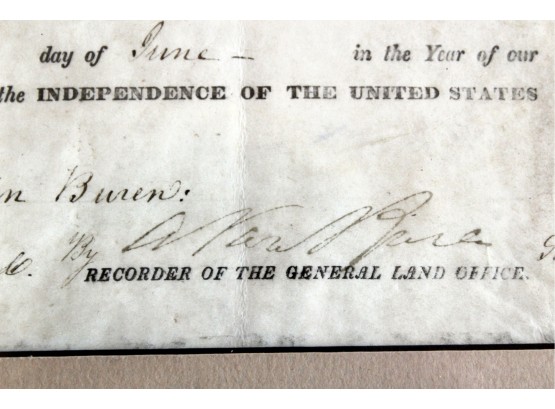 day of June — in the Year of our
the INDEPENDENCE OF THE UNITED STATES
n Buren:
By A Van Buren
RECORDER OF THE GENERAL LAND OFFICE.